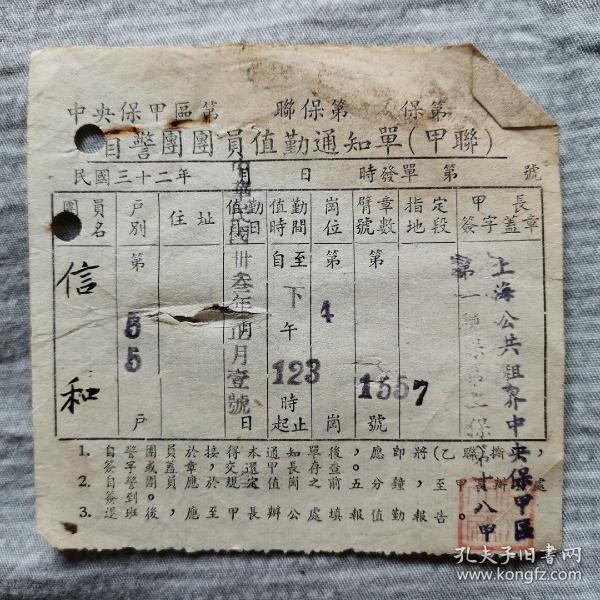 中央保甲區第　聯保第　保第
自警團團員值勤通知單(甲聯)
民國三十二年　月　日　時發單　第　號
團員名
戶別
住址
值勤日
值勤時間
崗位
臂章號數
指定地段
甲長簽字蓋章
信和
第 55 戶
中華民國卅叁年正月壹號
日
自至
下午
123
時起止
第 4 崗
第 1557 號
上海公共租界中央保甲區
第一聯保第二保第廿八甲
1. 自警團員於接得本通知單後，應即將(乙聯)撕，
簽字或蓋章交還甲長存查。
2. 自警團員應於規定值崗前五鐘，至甲長辦處
簽到。
3. 退班後，應至甲長辦公處填報值勤報告。
孔夫子旧書网
www.kongfz.com